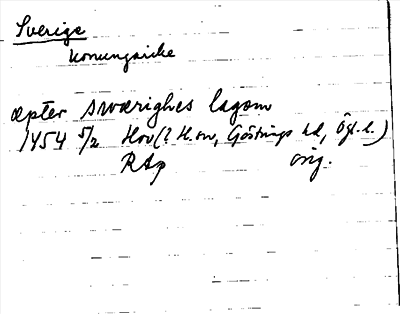 Sverige
konungarike
æpter swærighes lagom
1454 5/2 Hov (? H. sn, Göstrings hd, Ög. l.)
RAp orig.